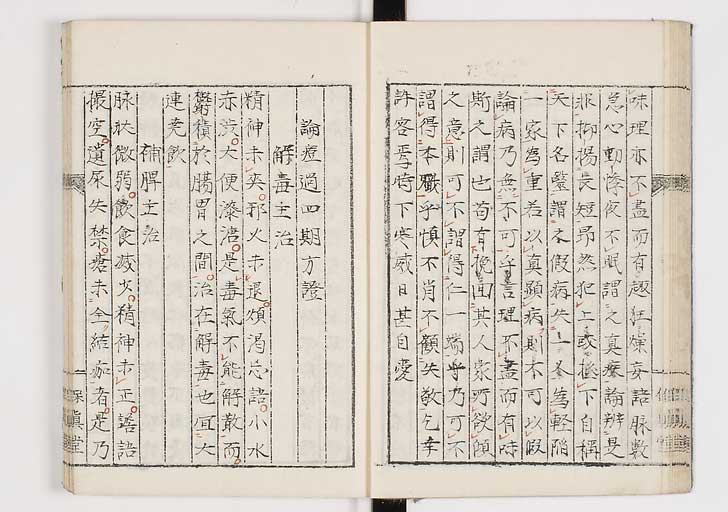 味理亦不盡而有趣狂燥妄語脉數
急心動悸夜不眠謂之真癢論辨是
非抑揚長短昂然犯上或極下自稱
天下名醫謂本假病失上本爲輕陷
一家爲重若以真顕病則不可以假
論病乃無不可乎言理不盡而有味
斯之謂也苟有挽回其人衆所欲傾
之意則可不謂得仁一端乎乃可不
謂得本職乎慎不肖不顧失敬乞幸
許容焉時下寒威日甚自愛
論痘過四期方證
解毒主治
精神未爽邪火未退煩渴忘語小水
赤澁大便溏泄是毒氣不能解散而
鬱積於腸胃之間治在解毒也宜大
連堯飲
補脾主治
脉狀微弱飲食減少精神未正譫語
撮空遺尿失禁瘡未全結痂者是乃
保眞堂